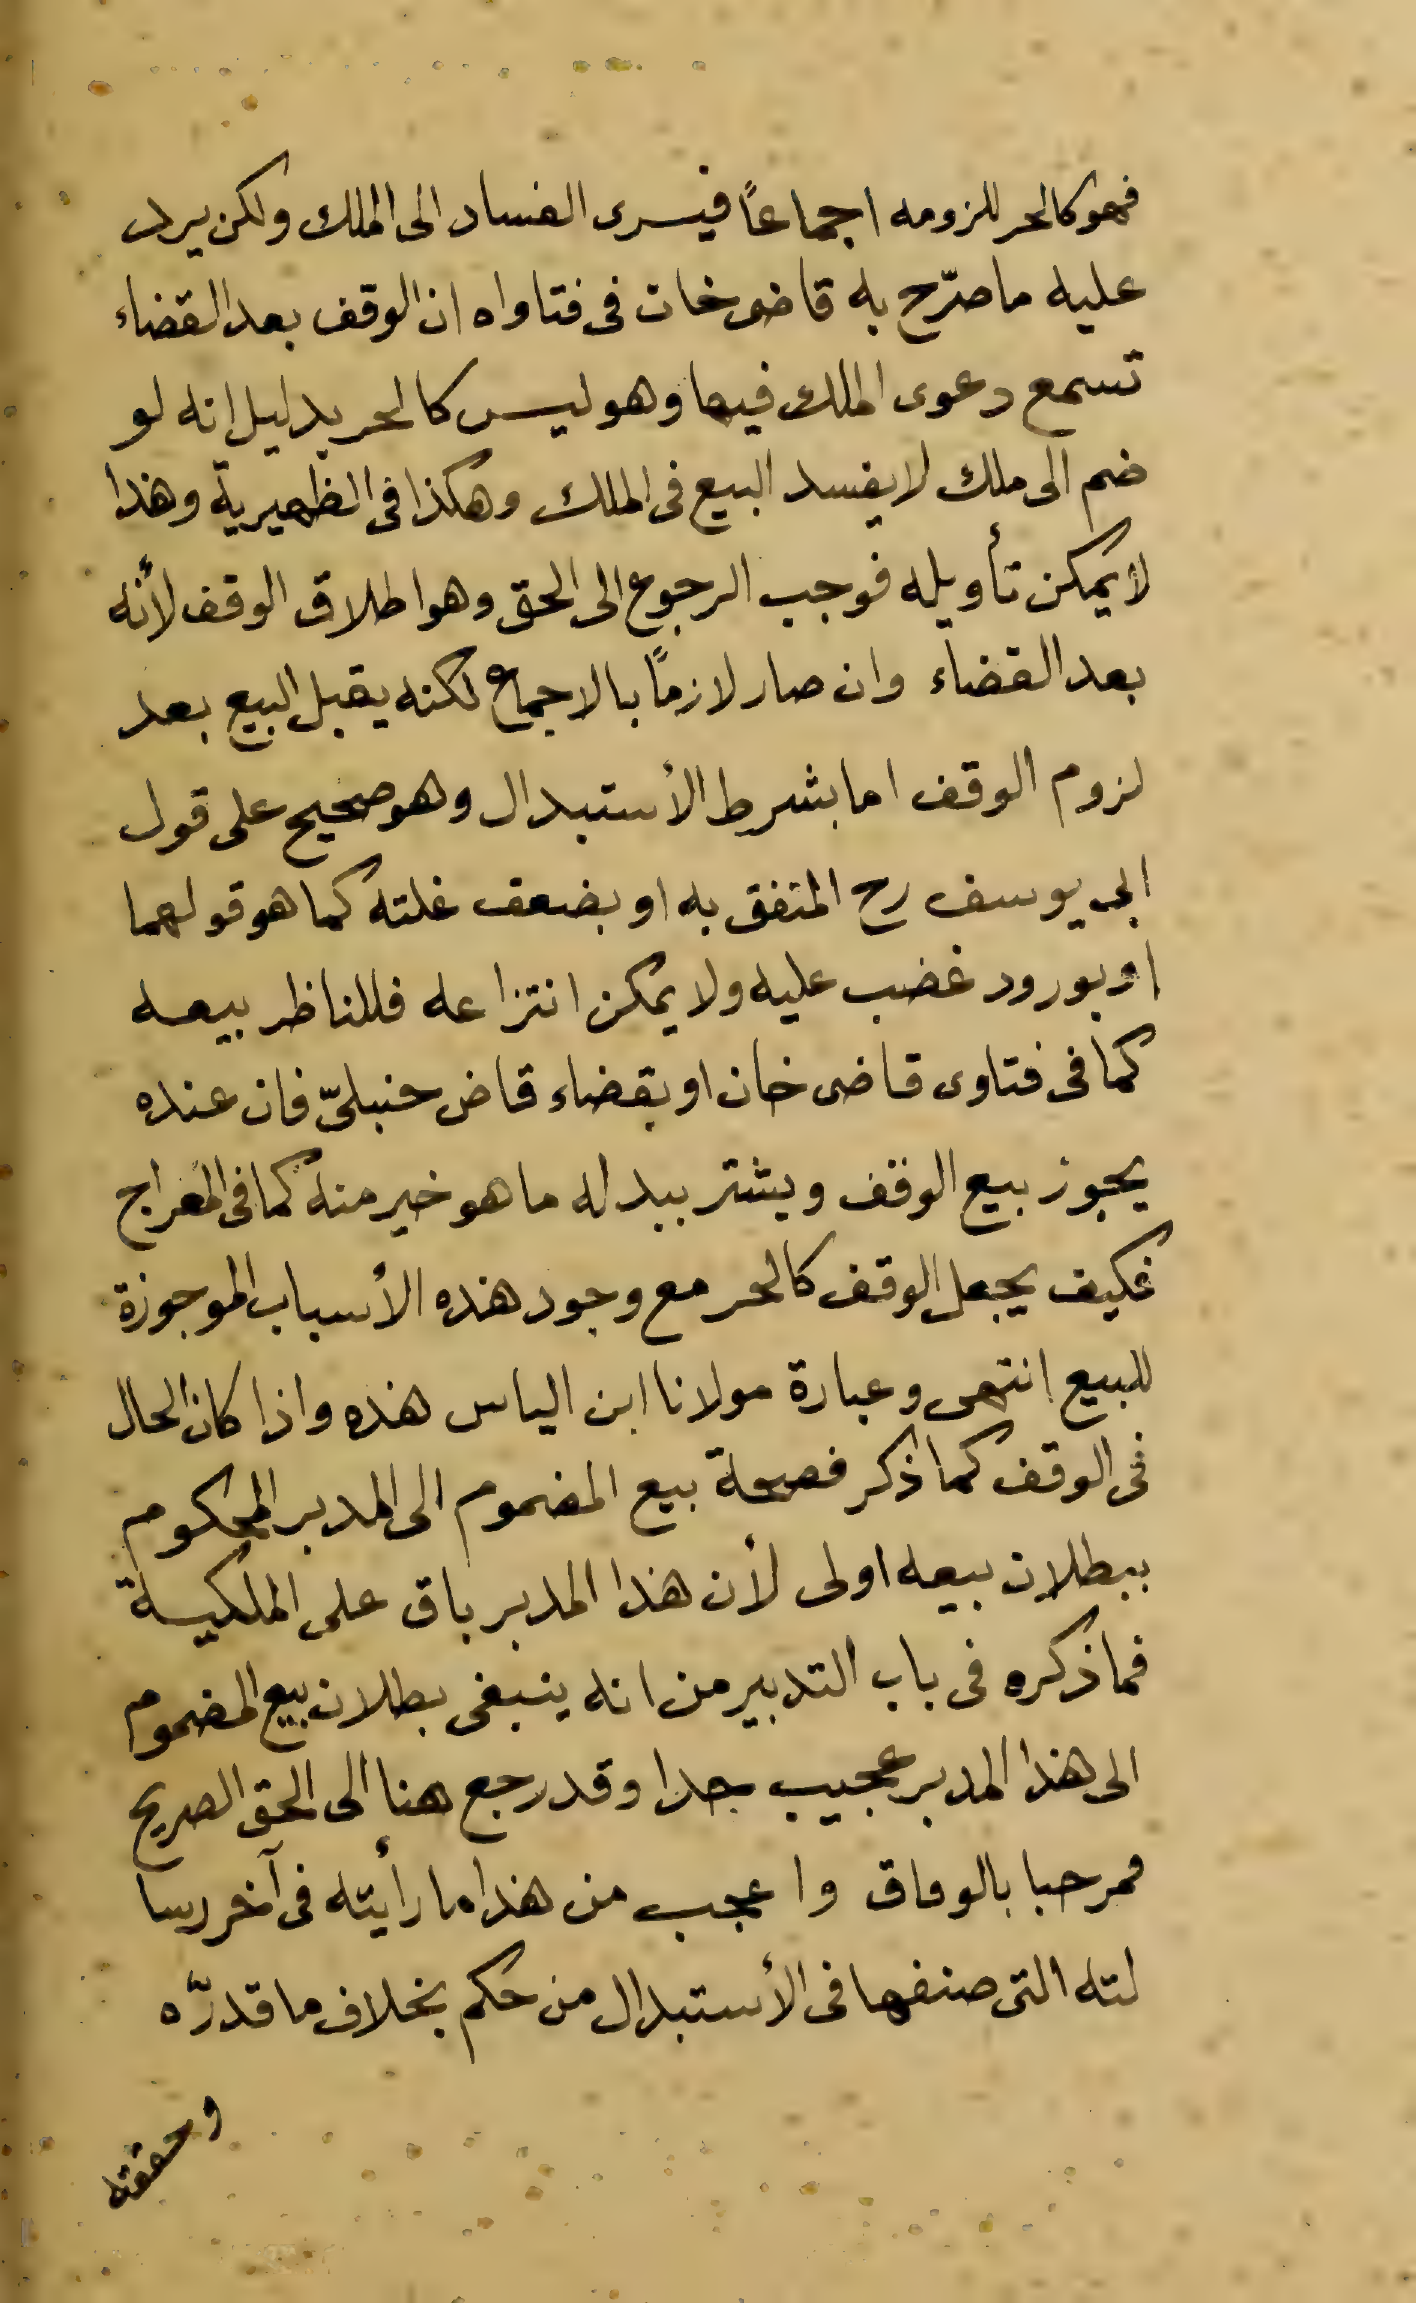 فهو كالحر للزومه اجماعًا فيسرى الفساد الى الملك ولكن يرد
عليه ما صرّح به قاضى خان فى فتاواه ان الوقف بعد القضاء
تسمع دعوى الملك فيها وهو ليس كالحر بدليل انه لو
ضم الى ملك لا يفسد البيع فى الملك وهكذا فى الظهيرية وهذا
لا يمكن تأويله فوجب الرجوع الى الحق وهو اطلاق الوقف لأنه
بعد القضاء وان صار لازمًا بالاجماع لكنه يقبل البيع بعد
لزوم الوقف اما بشرط الأستبدال وهو صحيح على قول
ابى يوسف رح المتفق به او بضعف غلته كما هو قولهما
او بورود غضب عليه ولا يمكن انتزاعه فللناظر بيعه
كما فى فتاوى قاضى خان او بقضاء قاض حنبلىّ فان عنده
يجوز بيع الوقف ويشتر ببدله ما هو خير منه كما فى المعراج
فكيف يجعل الوقف كالحر مع وجود هذه الأسباب الموجوزة
للبيع انتهى وعبارة مولانا ابن الياس هذه واذا كان الحال
فى الوقف كما ذكر فصحة بيع المضموم الى المدبر المحكوم
ببطلان بيعه اولى لأن هذا المدبر باق على الملكية
فما ذكره فى باب التدبير من انه ينبغى بطلان بيع المضموم
الى هذا المدبر عجيب جدا وقد رجع هنا الى الحق الصريح
فمرحبا بالوفاق واعجب من هذا ما رأيته فى آخر رسا
لته التى صنفها فى الأستبدال من حكم بخلاف ما قدرّه
وحققته